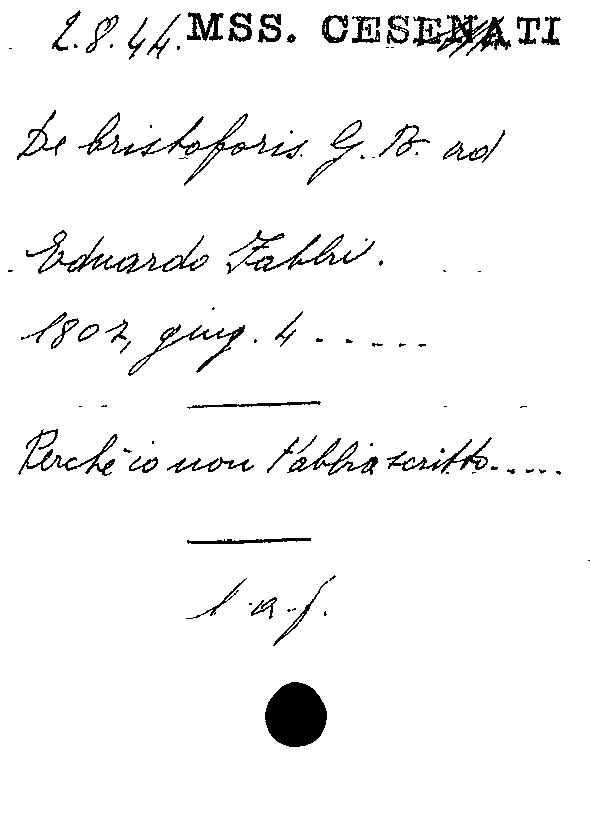 2.8.44. MSS. CESENATI
De Cristoforis G. B. ad
Eduardo Fabbri.
1807, giug. 4 . . . . .
Perchè io non t'abbia scritto.....
l. a. f.